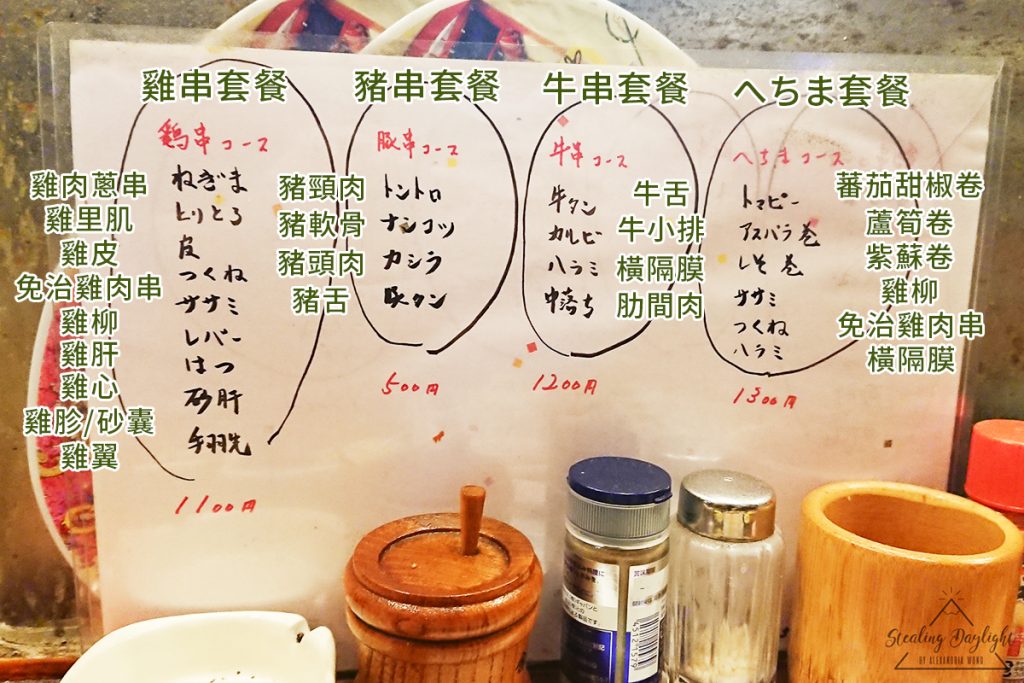 雞串套餐
鶏串コース
ねぎま
とりとろ
皮
つくね
ササミ
レバー
はつ
砂肝
手羽先
1100円
雞肉蔥串
雞里肌
雞皮
免治雞肉串
雞柳
雞肝
雞心
雞胗/砂囊
雞翼
豬串套餐
豚串コース
トントロ
ナンコツ
カシラ
豚タン
500円
豬頸肉
豬軟骨
豬頭肉
豬舌
牛串套餐
牛串コース
牛タン
カルビ
ハラミ
中落ち
1200円
牛舌
牛小排
橫隔膜
肋間肉
へちま套餐
へちまコース
トマピー
アスパラ巻
しそ巻
ササミ
つくね
ハラミ
1300円
蕃茄甜椒卷
蘆筍卷
紫蘇卷
雞柳
免治雞肉串
橫隔膜
Stealing Daylight
BY ALEXANDRIA WONG